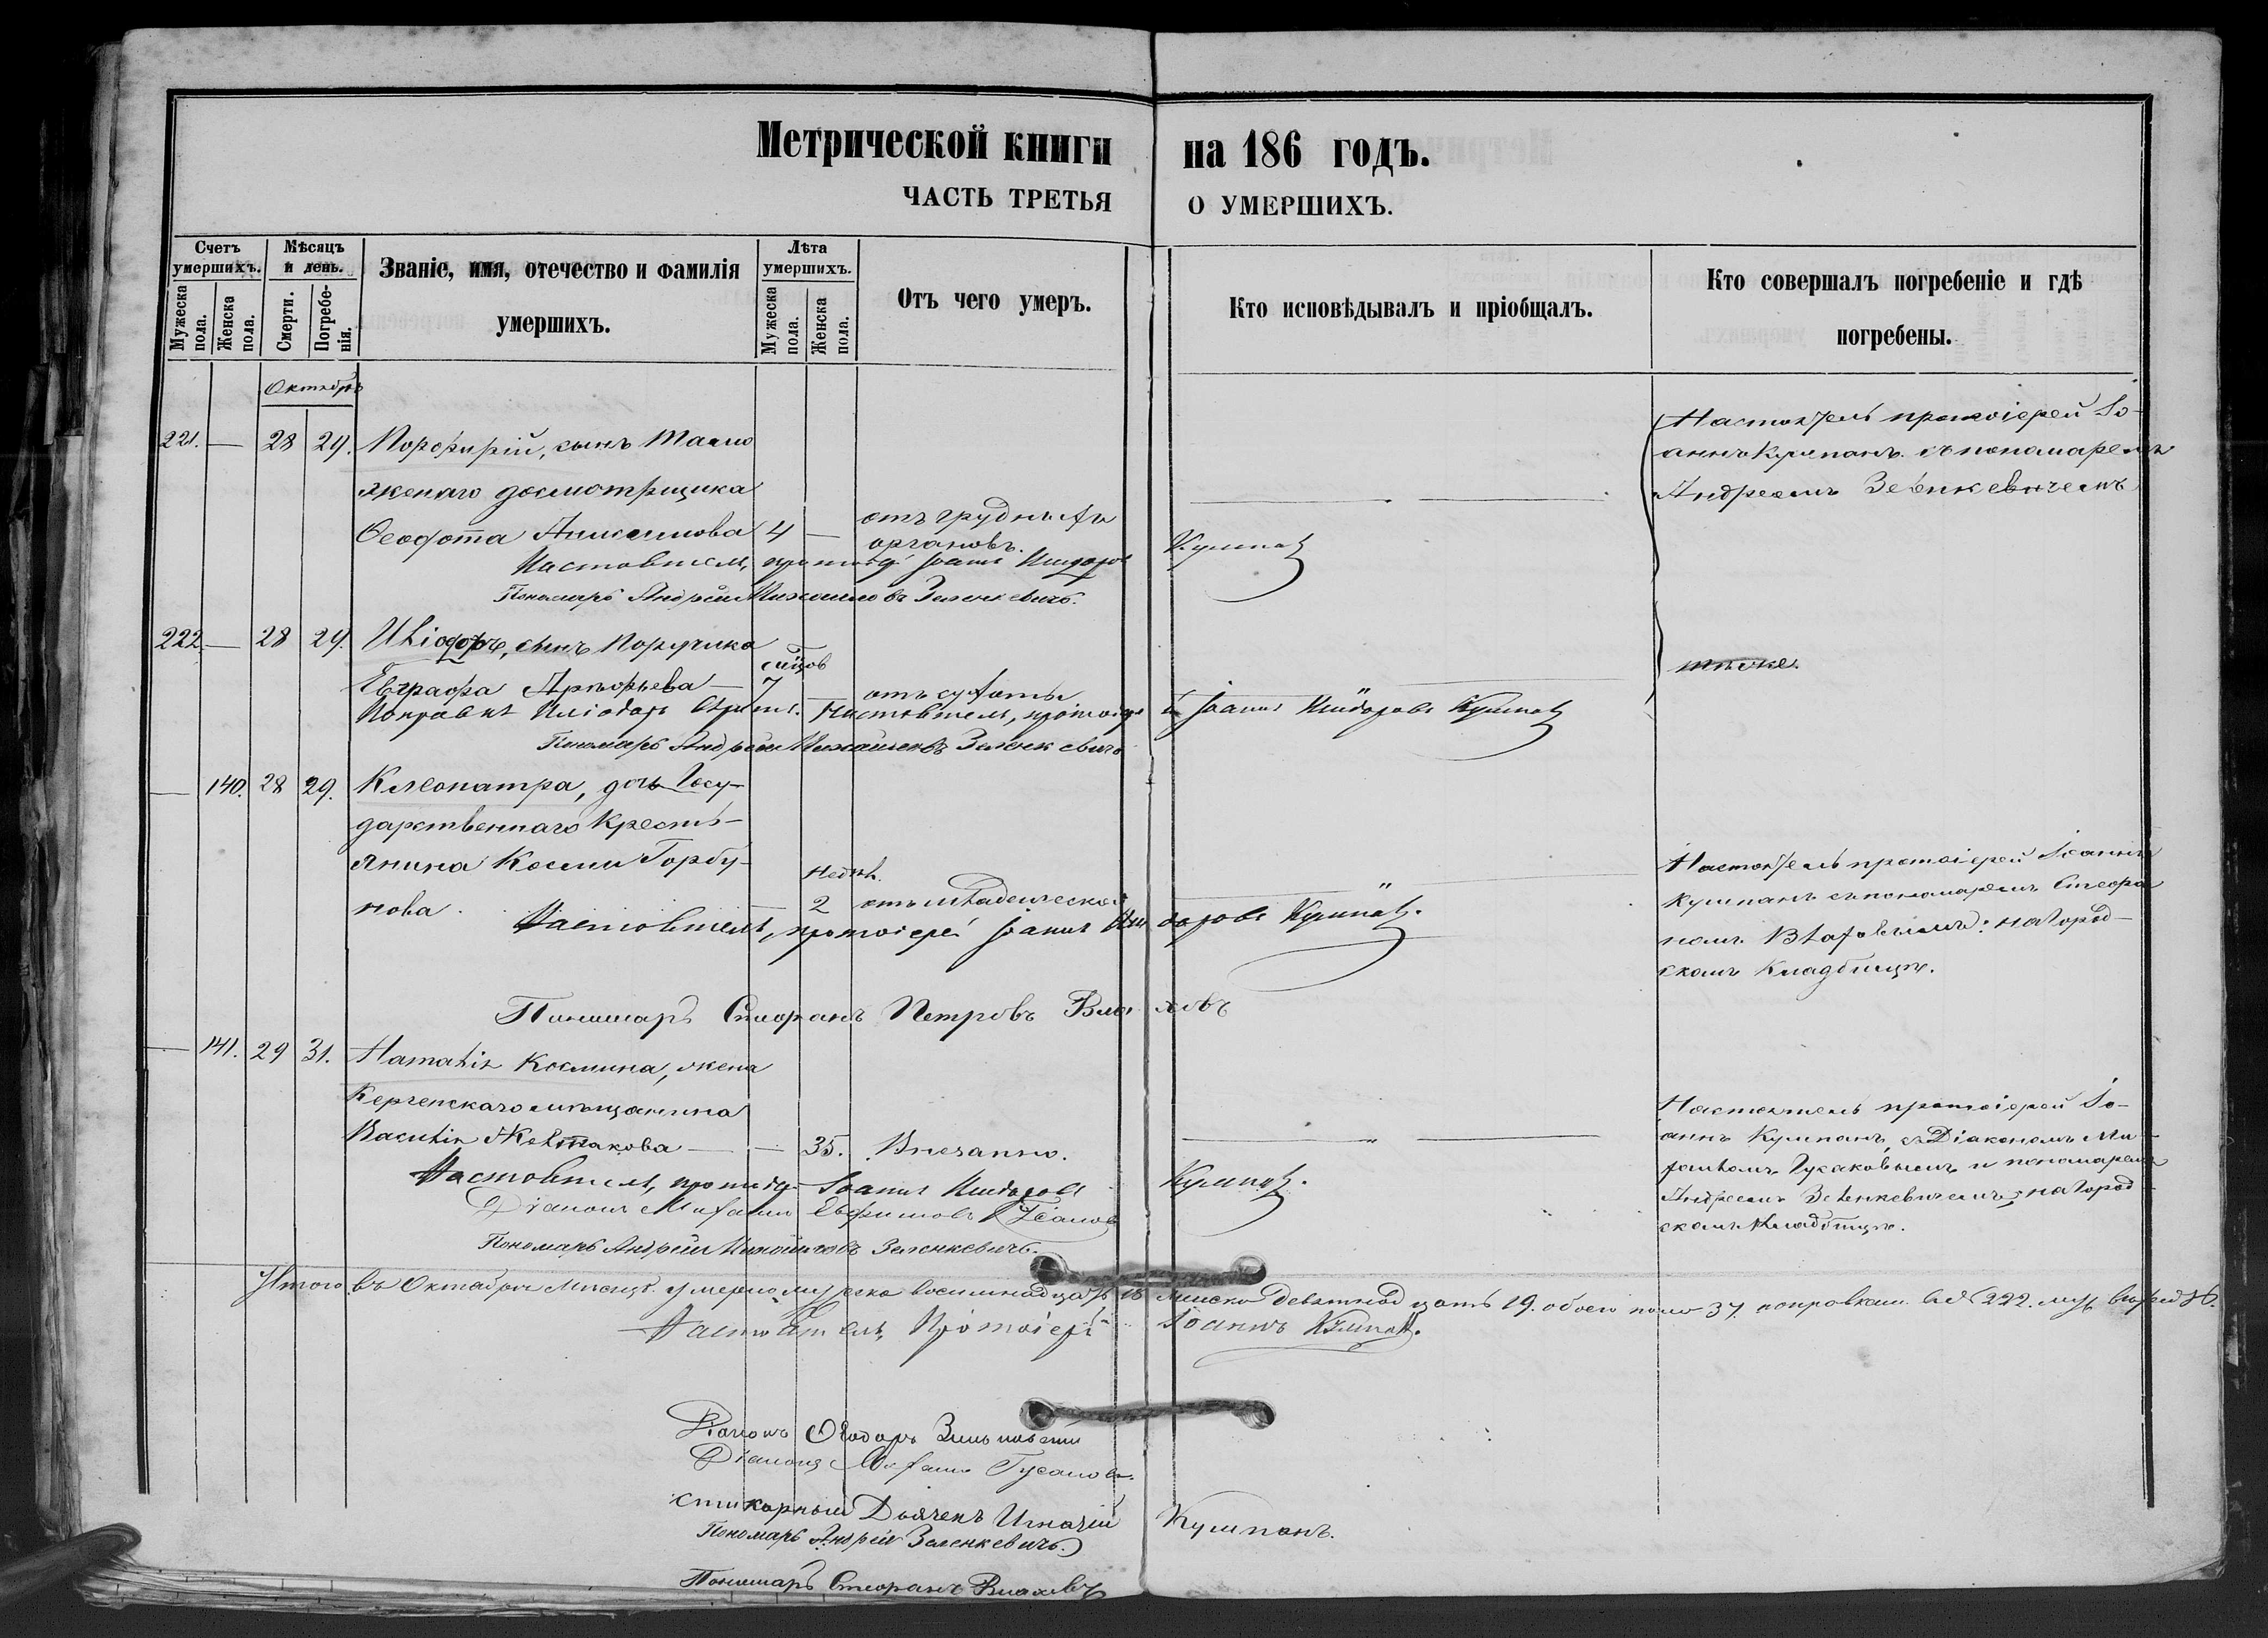 Метрической книги на 186 годъ.
ЧАСТЬ ТРЕТЬЯ О УМЕРШИХЪ.
Счетъ умершихъ.
Мужеска пола.
Женска пола.
Мѣсяцъ и день.
Смерти.
Погребенія.
Званіе, имя, отечество и фамилія
умершихъ.
Лѣта умершихъ.
Мужеска пола.
Женска пола.
Отъ чего умеръ.
Кто исповѣдывалъ и пріобщалъ.
Кто совершалъ погребеніе и гдѣ
погребены.
Октябрь
221. — 28 29. Порфирій, сынъ Тамо
женнаго досмотрщика
Феодота 4 — отъ грудныхъ
органовъ.
Настоятель протоіерей Іо-
аннъ Кушпанъ съ пономаремъ
Андреемъ Зеленкевичемъ
Настоятель, протоіерей Іоаннъ Исидоровъ
Пономарь Андрей Михаиловъ Зеленкевичъ.
222. — 28 29. Иліодоръ, сынъ Поручика
Евграфа — 7 — отъ сухоты
Настоятель, протоіерей Іоаннъ Исидоровъ
Пономарь Андрей Михаиловъ Зеленкевичъ
тѣже.
— 140. 28 29. Клеопатра, дочь Госу-
дарственнаго Кресть-
янина Космы Горбу-
нова. — 2 отъ младенческой
недѣл.
Настоятель протоіерей Іоаннъ
Кушпанъ съ пономаремъ Стефа
номъ Влаховымъ: на Город-
скомъ Кладбищѣ.
Настоятель, протоіерей Іоаннъ Исидоровъ
Пономарь Стефанъ Петровъ Влаховъ
— 141. 29 31. Наталія Космина, жена
Керченскаго мѣщанина
Василія — — 35. Внезапно.
Настоятель протоіерей Іо-
аннъ Кушпанъ, съ Діакономъ Ми
хаиломъ Гусаковымъ и пономаремъ
Андреемъ Зеленкевичемъ; на Город
скомъ Кладбищѣ.
Настоятель, протоіерей Іоаннъ Исидоровъ
Діаконъ Михаилъ Евфимовъ
Пономарь Андрей Михаиловъ Зеленкевичъ.
Итого въ Октябрѣ Мѣсяцѣ умерло мужеска восемнадцать 18 женска девятнадцать 19. обоего пола 37.
Настоятель, Протоіерей Іоаннъ Кушпанъ.
Діаконъ Ѳеодоръ
Діаконъ Михаилъ Гусаковъ.
стихарный Дьячекъ Игнатій Кушпанъ.
Пономарь Андрей Зеленкевичъ.
Пономарь Стефанъ Влаховъ